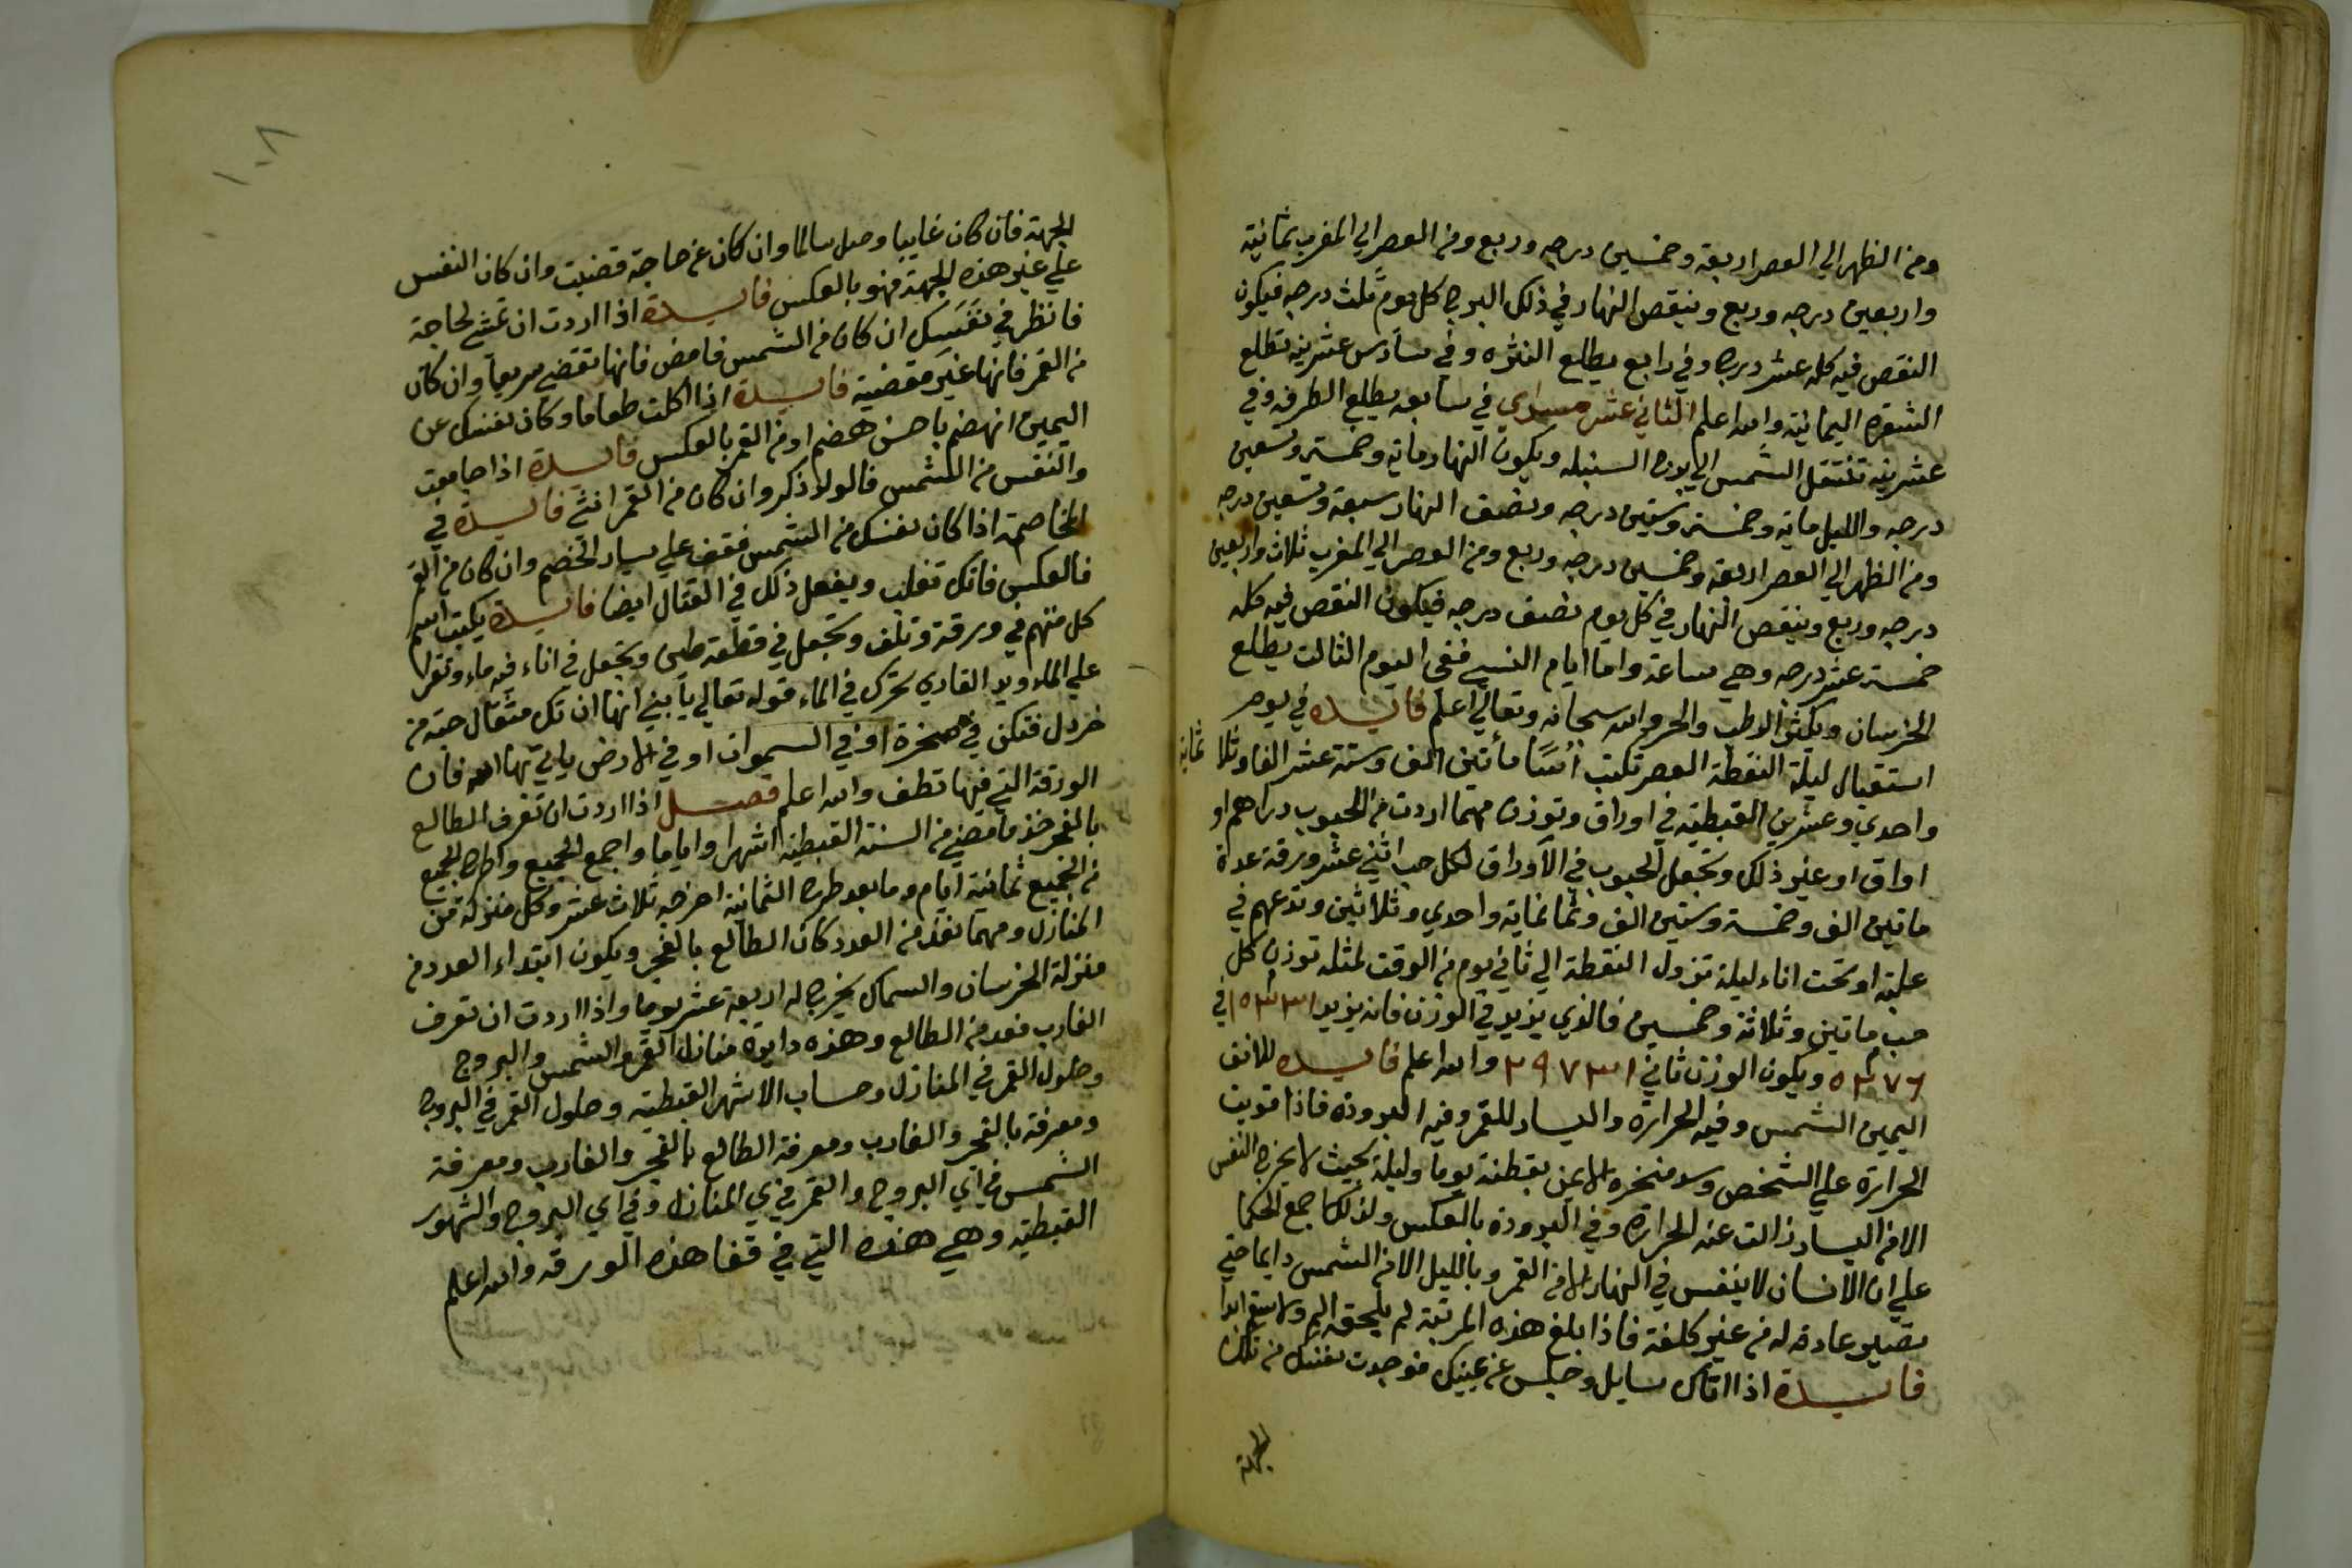 ومن الظهر الي العصر اربعة وخمسين درجه وربع ومن العصر الي المغرب ثمانية
واربعين درجه وربع وينقص النهار في ذلك البرج كل يوم ثلث درجه فيكون
النقص فيه كله عشر درج وفي رابع يطلع النثره وفي سادس عشرينه تطلع
الشعره اليمانية والله اعلم الثاني عشر مسري في سابعه يطلع الطرفه وفي
عشرينه تنتقل الشمس الي برج السنبله ويكون النهار ماية وخمسة وتسعين
درجه والليل ماية وخمسة وستين درجه ونصف النهار سبعة وتسعين درجه
ومن الظهر الي العصر اربعة وخمسين درجه وربع ومن العصر الي المغرب ثلاث واربعين
درجه وربع وينقص النهار في كل يوم نصف درجه فيكون النقص فيه كله
خمسة عشر درجه وهي ساعة واما ايام النسي ففي اليوم الثالث يطلع
الخرسان ويكثر الرطب والحر والله سبحانه وتعالي اعلم فايده في يوم
استقبال ليلة النقطة العصر تكتب مأتين الف وستة عشر الفا وثلا ثماية
واحدي وعشرين القبطيه في اوراق وتوزن مهما اردت من الحبوب دراهم او
اواق او غير ذلك وتجعل الحبوب في الأوراق لكل حب اثني عشر ورقة عدة
ماتين الف وخمسة وستين الف وثمانماية واحدي وثلاثين وتدعهم في
علبة او تحت اناء ليلة نزول النقطة الي ثاني يوم من الوقت لمثله توزن كل
حب ماتين وثلاثة وخمسين فالذي يزيد في الوزن فانه يزيد في
ويكون الوزن ثاني ٢٩٧٣١ والله اعلم فايده للانف
اليمين الشمس وفيه الحرارة واليسار للقمر وفيه البرودة فاذا قويت
الحرارة علي الشخص وسد منخره الايمن بقطنة يوما وليلة بحيث لا يخرج النفس
الا من اليسار زالت عنه الحرارة وفي البرودة بالعكس ولذلك اجمع الحكما
علي ان الانسان لا يتنفس في النهار الا من القمر وبالليل الا من الشمس دايما حتي
تصير عادة له من غير كلفة فاذا بلغ هذه المرتبة لم يلحقه الم ولا سقم ابدا
فايدة اذا اتاك سايل وجلس عن يمينك فوجدت نفسك من تلك
الجهة
١٠٨
الجهة فان كان غايبا وصل سالما وان كان عن حاجة قضيت وان كان النفس
علي غير هذه الجهة فهو بالعكس فايدة اذا اردت ان تمشي لحاجة
فانظر في نفسك ان كان من الشمس فامض فانها تقضي سريعا وان كان
من القمر فانها غير مقضية فايدة اذا اكلت طعاما وكان نفسك عن
اليمين انهضم باحسن هضم او من القمر بالعكس فايدة اذا جامعت
والنفس من الشمس فالولد ذكر وان كان من القمر انثي فايدة في
المخاصمة اذا كان نفسك من الشمس فقف علي يسار الخصم وان كان من القمر
فالعكس فانك تغلب ويفعل ذلك في القتال ايضا فايدة يكتب اسم
كل متهم في ورقة وتلف وتجعل في قطعة طين وتجعل في اناء فيه ماء وتقرا
علي الماء ويد القاري تحرك في الماء قوله تعالي يا بني انها ان تك مثقال حبة من
خردل فتكن في صخرة او في السموات او في الارض يات بها الله فان
الورقة التي فيها تطف والله اعلم فصل اذا اردت ان تعرف الطالع
بالفجر خذ ما مضي من السنة القبطية اشهرا واياما واجمع الجميع واطرح الجميع
من الجميع ثمانية ايام وما بعد طرح الثمانية اخرجه ثلاث عشر وكل منزلة من
المنازل ومهما نفد من العدد كان الطالع بالفجر ويكون ابتداء العدد من
منزلة الخرسان والسماك يخرج له اربعة عشر يوما واذا اردت ان تعرف
الغارب فعد من الطالع وهذه دايرة منازل القمر والشمس والبروج
وحلول القمر في المنازل وحساب الاشهر القبطيه وحلول القمر في البروج
ومعرفة بالفجر والغارب ومعرفة الطالع بالفجر والغارب ومعرفة
الشمس في اي البروج والقمر في اي المنازل وفي اي البروج والشهور
القبطيه وهي هذه التي في قفا هذه الورقه والله اعلم